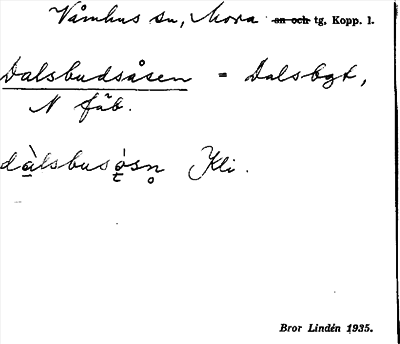 Våmhus sn, Mora sn och tg, Kopp. l.
Dalsbudsåsen = Dalsbgt,
N fäb.
dàlsbusósn Kli.
Bror Lindén 1935.